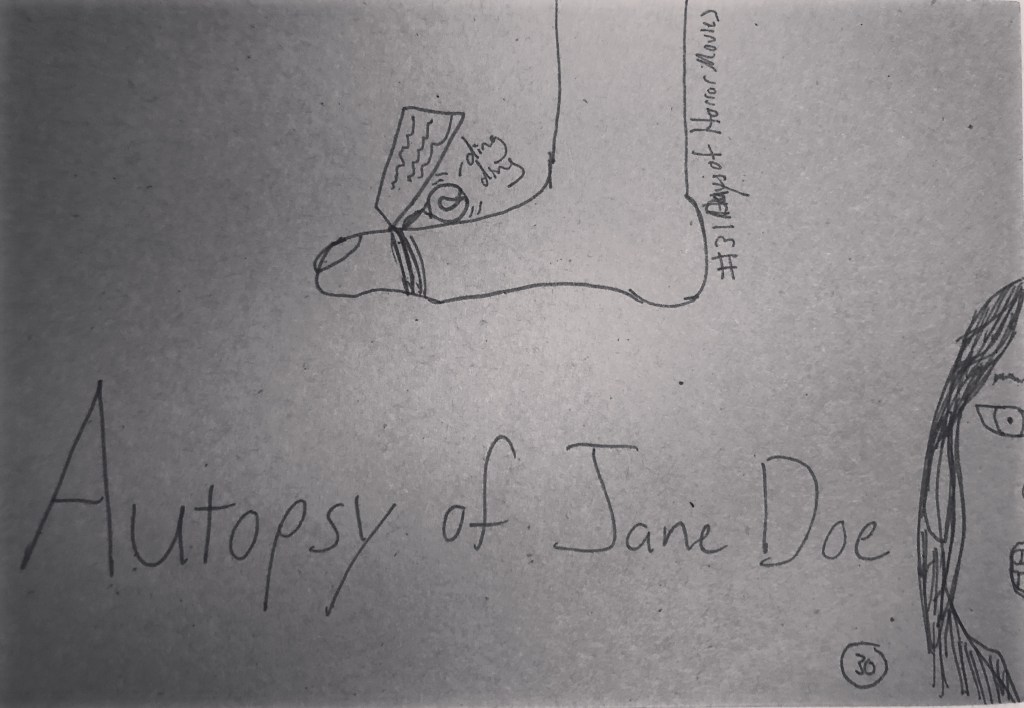 ding
ding
#31 Days of Horror Movies
Autopsy of Jane Doe
30